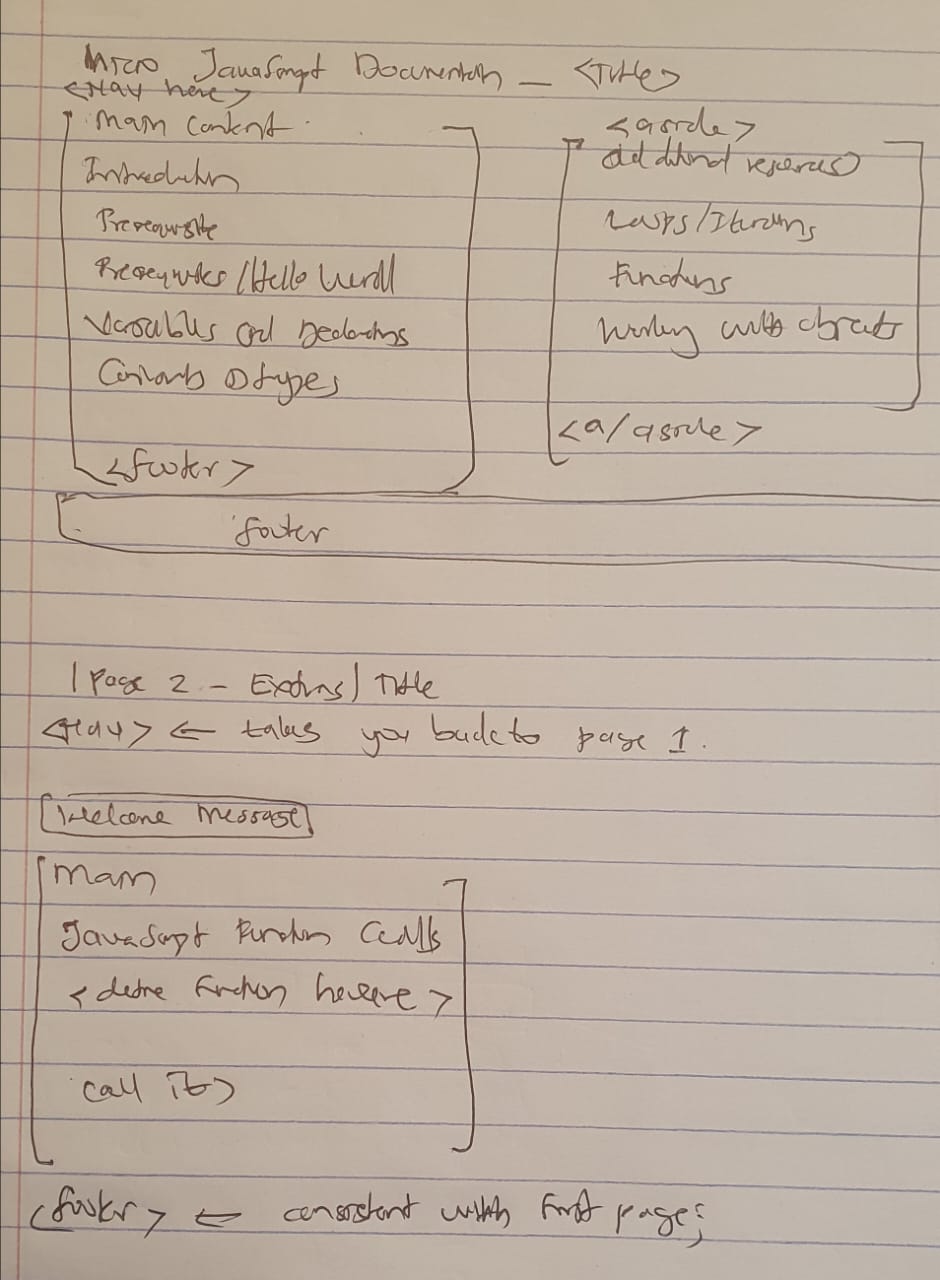 Micro JavaScript Documentation - <Title>
<Nav here>
Main Content
Introduction
Prerequisite
Prerequisites/Hello World
Variables and Declarations
D types
<footer>
<aside>
additional resources
Loops/Iterations
Functions
Working with objects
<a/aside>
footer
| Page 2 - Extras | Title
<Nav> ← takes you back to page 1.
Welcome Message
Main
JavaScript Function Calls
< define function heeere >
call it>
<footer> ← consistent with first page;